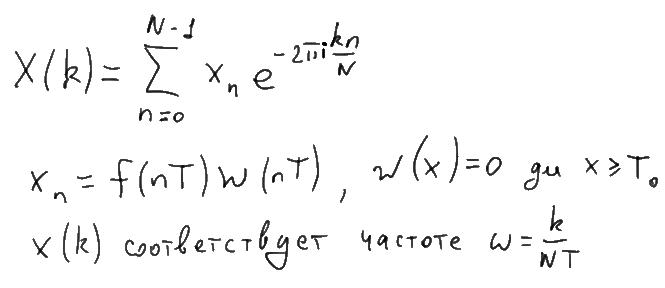 X(k) = \sum_{n=0}^{N-1} x_n e^{-2πi \frac{kn}{N}}
x_n = f(nT) w(nT), w(x)=0 для x ≥ T_0
X(k) соответствует частоте ω = \frac{k}{NT}